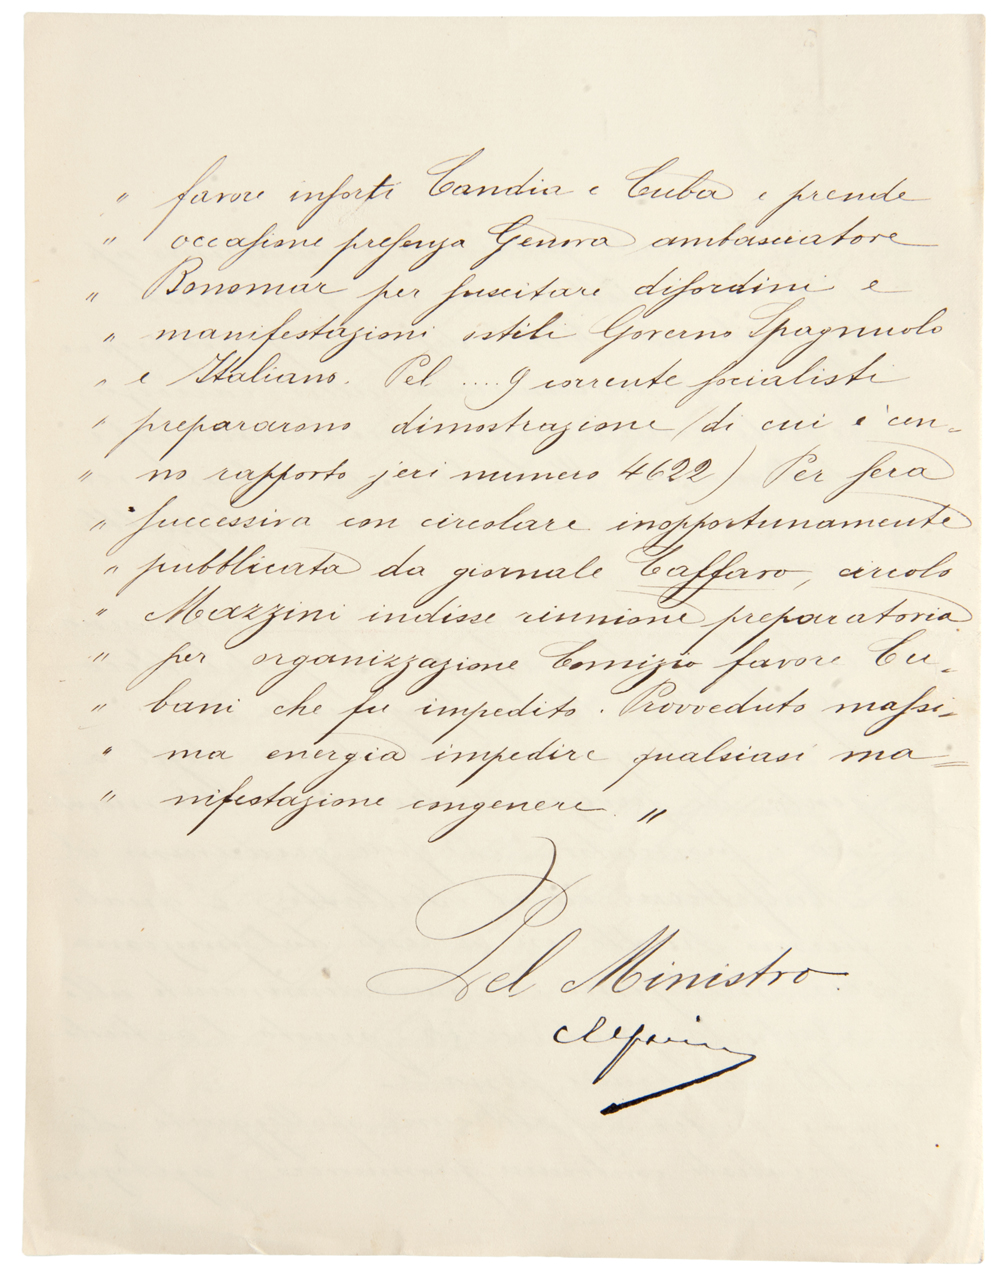 " favore insorti Candia e Cuba e prende
" occasione presenza Genova ambasciatore
" Bonomar per suscitare disordini e
" manifestazioni ostili Governo Spagnuolo
" e Italiano. Pel .... 9 corrente socialisti
" prepararono dimostrazione (di cui è cen-
" no rapporto jeri numero 4622) Per sera
" successiva con circolare inopportunamente
" pubblicata da giornale Caffaro, circolo
" Mazzini indisse riunione preparatoria
" per organizzazione Comizio favore Cu-
" bani che fu impedito. Provveduto massi-
" ma energia impedire qualsiasi ma=
" nifestazione congenere. "
Pel Ministro